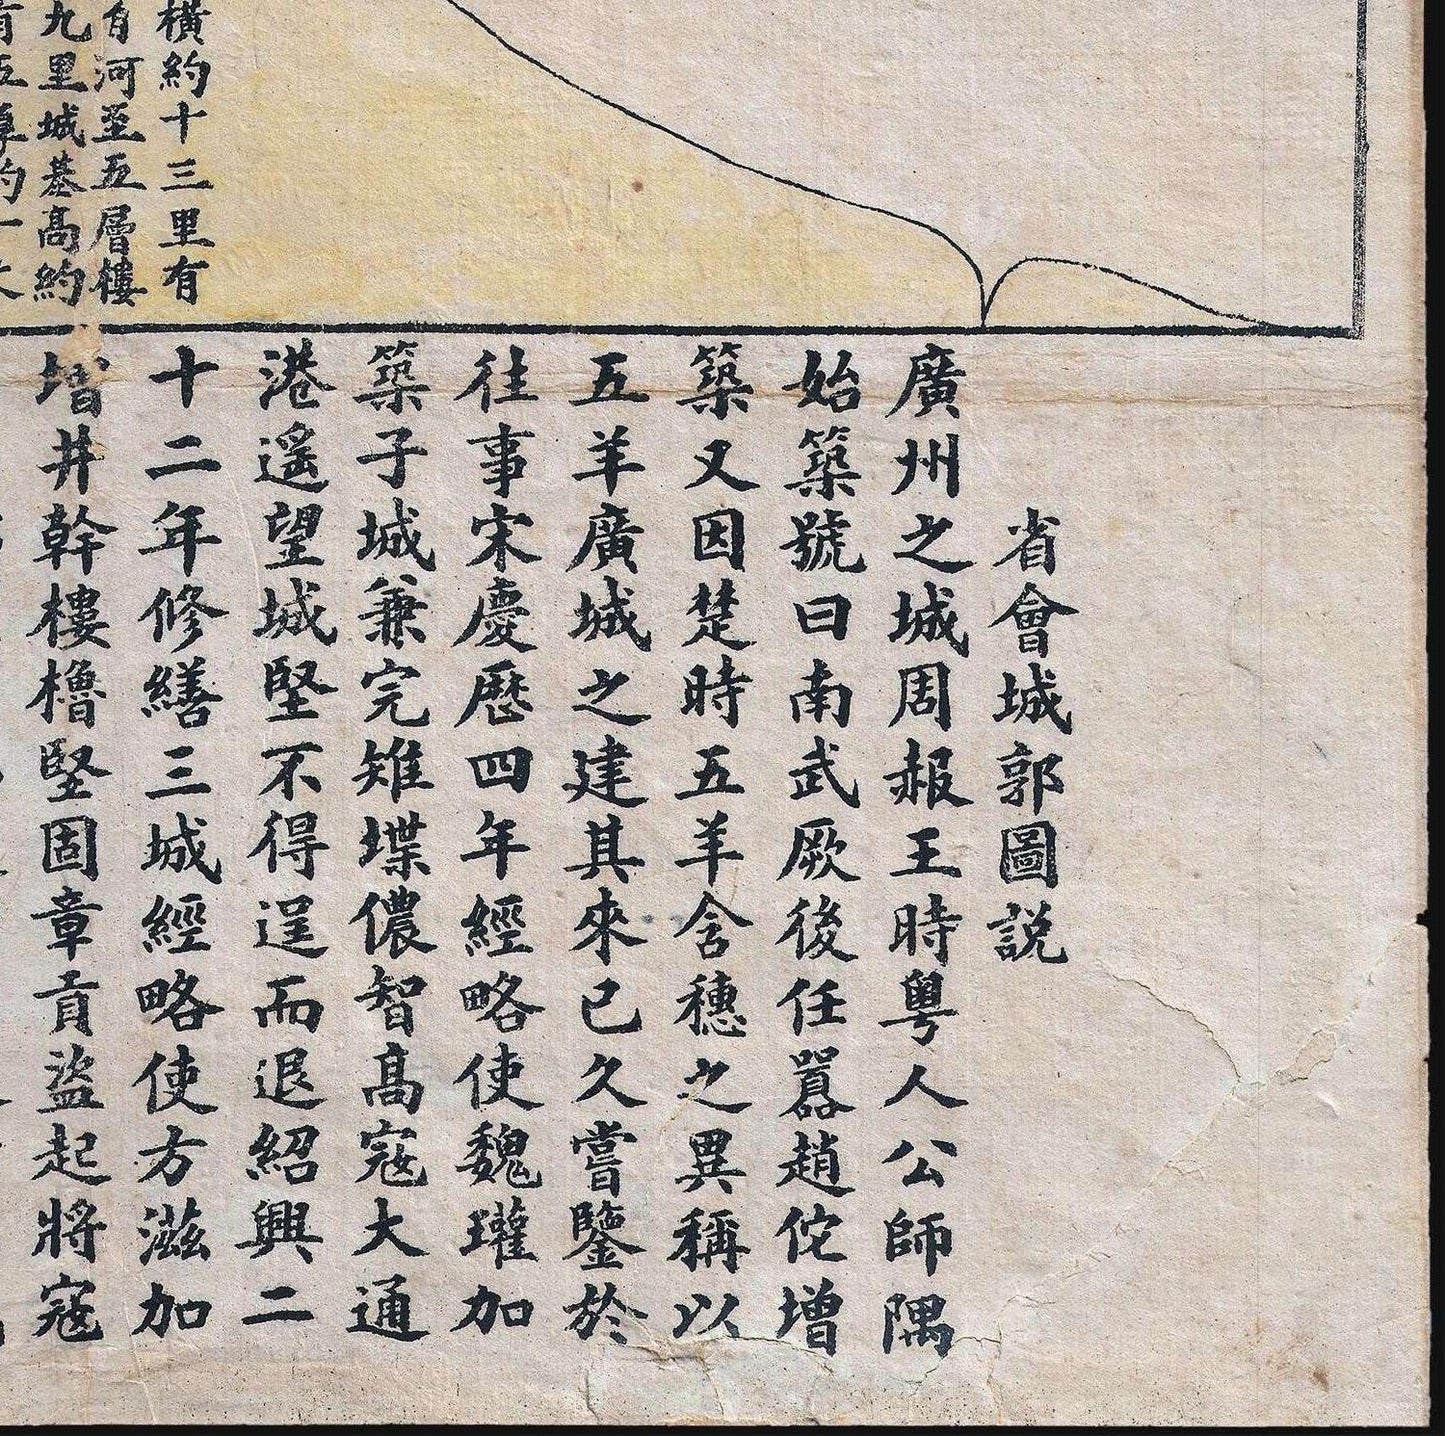 橫約十三里有
河至五層樓
九里城基高約
省會城郭圖説
廣州之城周赧王時粵人公師隅
始築號曰南武厥後任囂趙佗增
築又因楚時五羊含穗之異稱以
五羊廣城之建其來已久嘗鑒於
往事宋慶厯四年經略使魏瓘加
築子城兼完雉堞儂智高寇大通
港遥望城堅不得逞而退紹興二
十二年修繕三城經略使方滋加
增井幹樓櫓堅固章貢盜起將寇